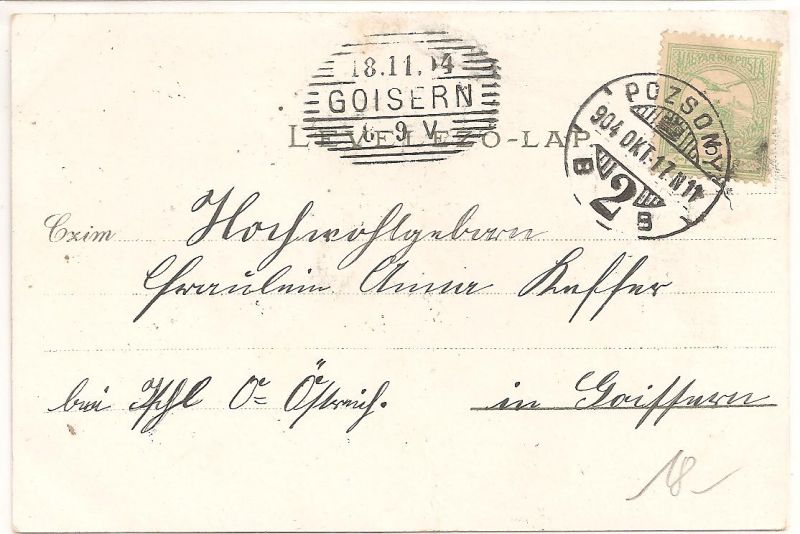 18.11.04
GOISERN
8-9 V
MAGYAR KIR. POSTA
POZSONY
904 OKT. 17. N 11
72
B B
LEVELEZŐ-LAP.
Czim Hochwohlgeborn
Fräulein Anna Keffer
bei Ischl O= Östreich. in Goissern
18